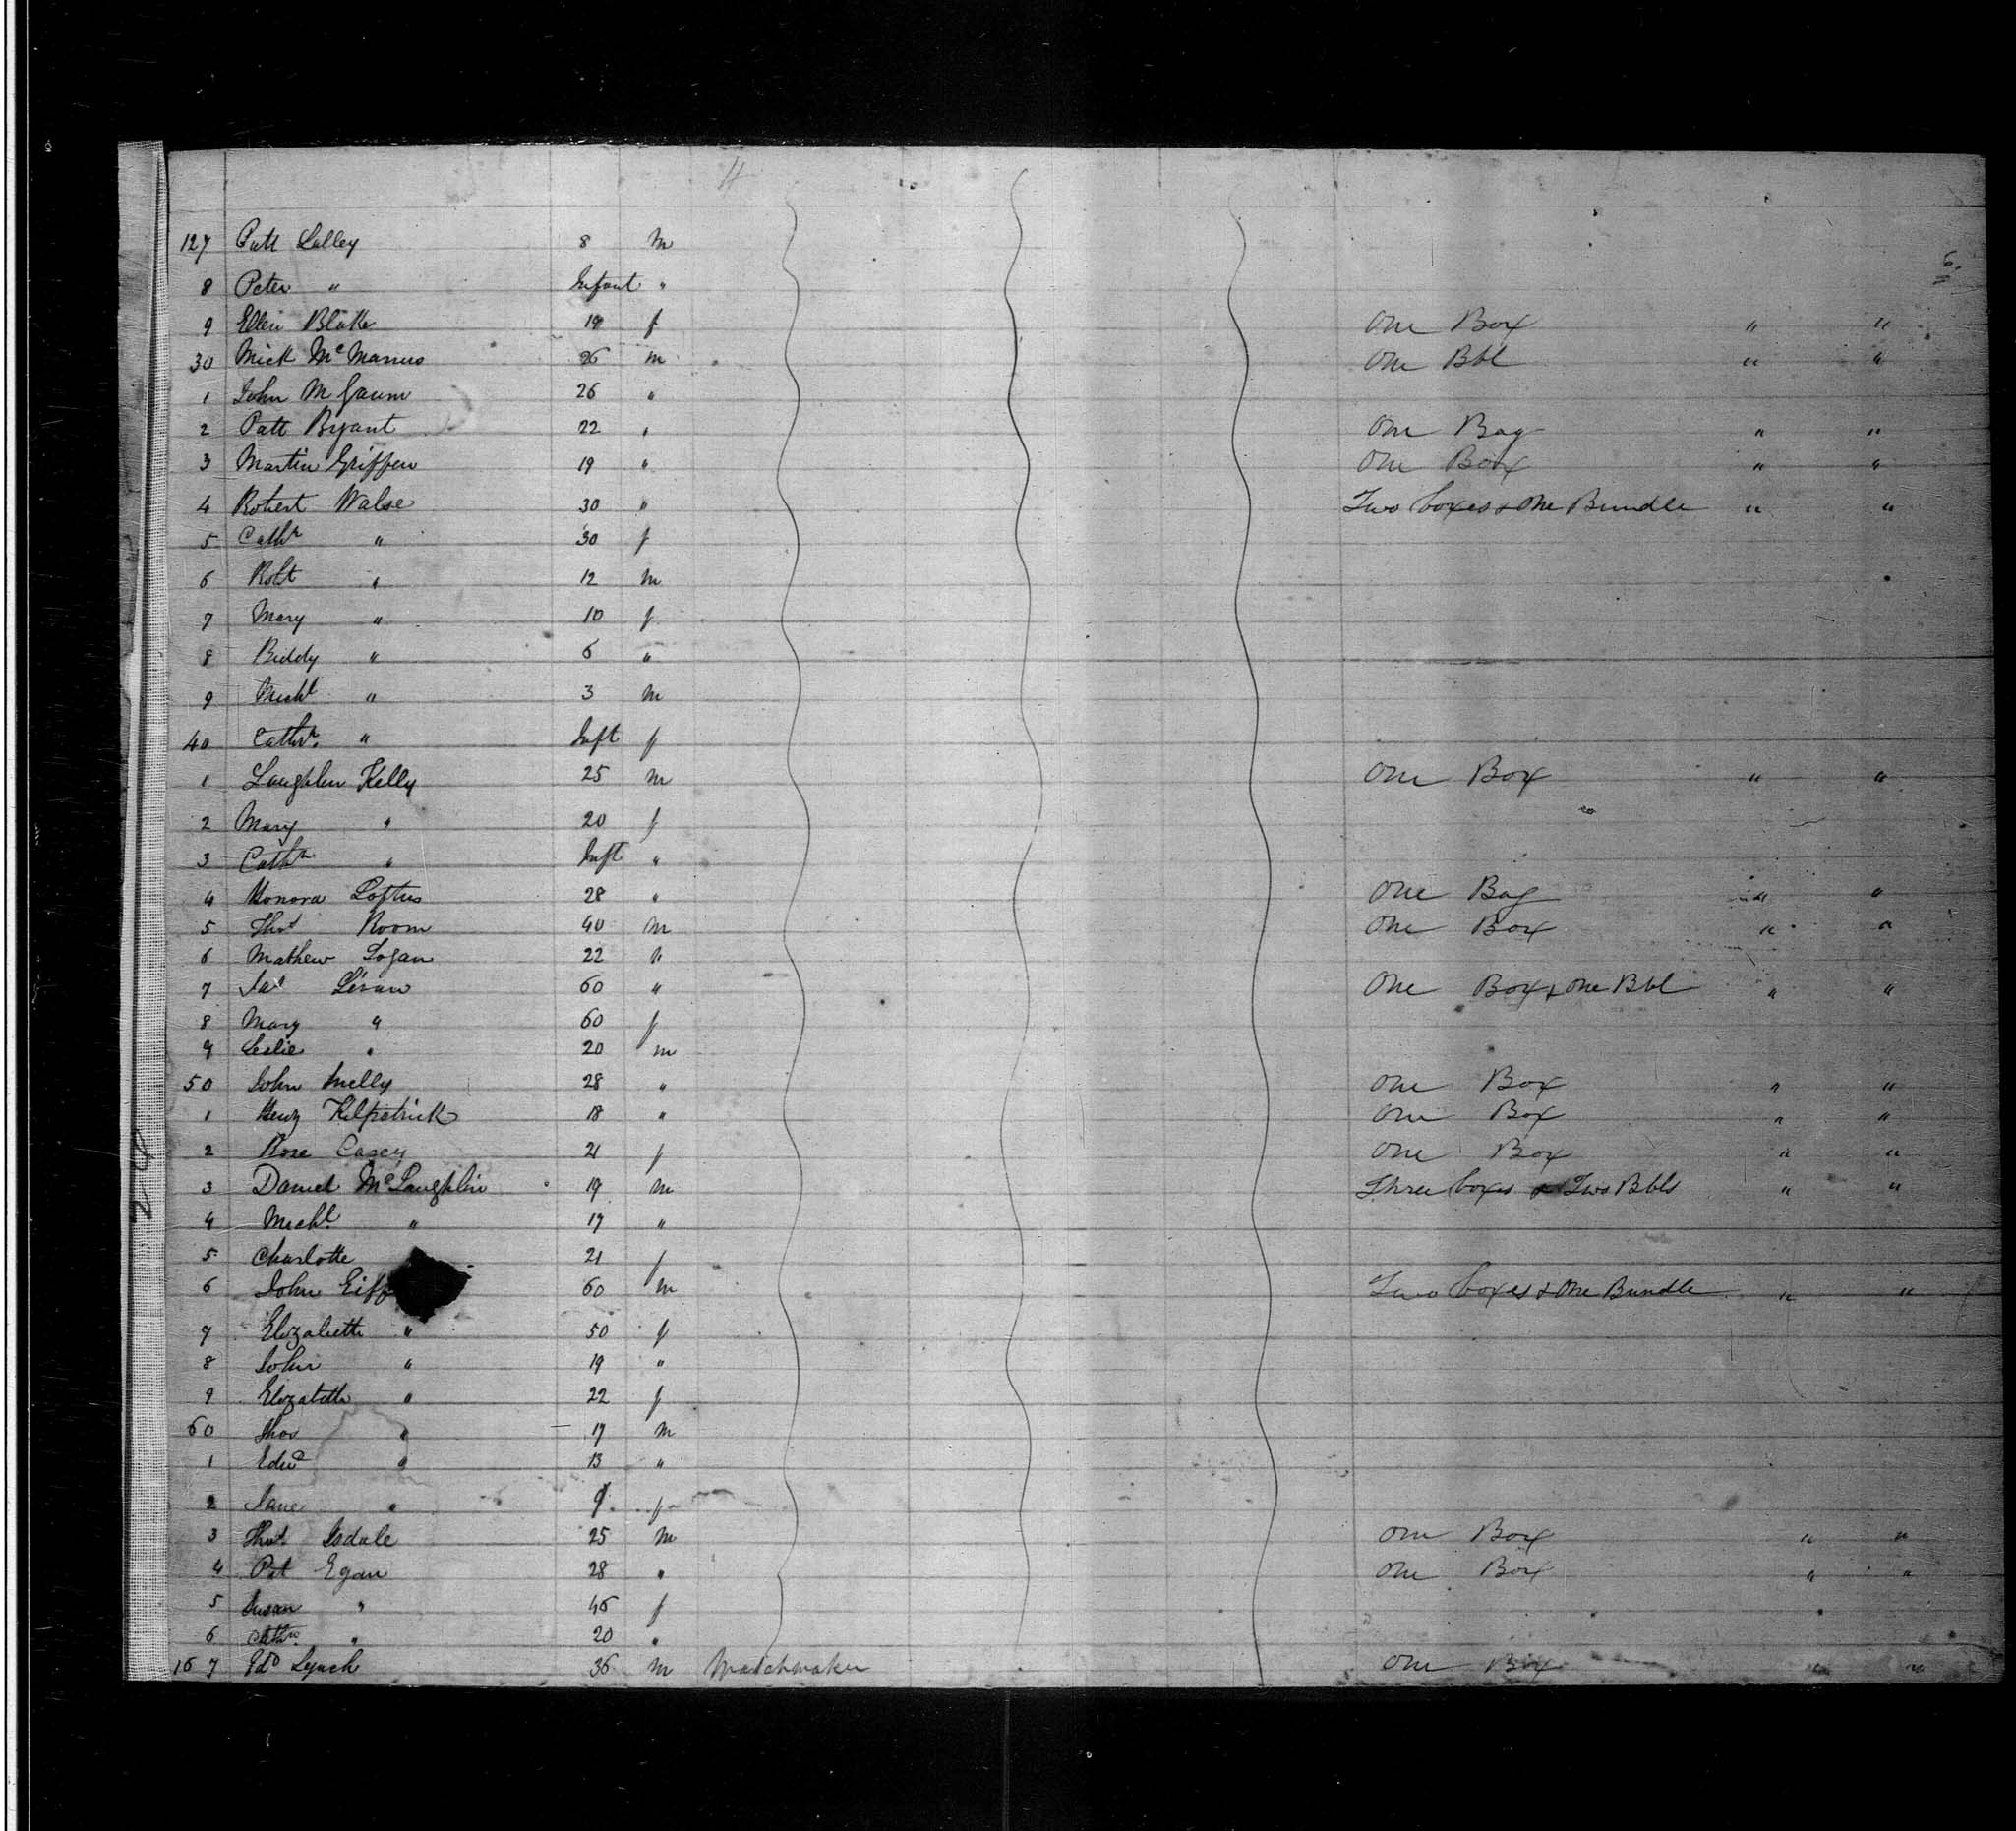 127 Patt Lalley 8 m
8 Peter " Infant "
9 Ellen Blake 19 f One Box " "
30 Mick McManus 26 m One Bbl " "
1 John M Gaum 26 "
2 Patt Bryant 22 " One Bag " "
3 Martin Griffen 19 " One Box " "
4 Robert Walse 30 " Two boxes & One Bundle " "
5 Cathn " 30 f
6 Robt " 12 m
7 Mary " 10 f
8 Biddy " 6 "
9 Michl " 3 m
40 Cathn " Inft f
1 Laughlen Kelly 25 m One Box " "
2 Mary " 20 f
3 Cathn " Inft "
4 Honora Loftus 28 " One Bag " "
5 Thos Room 40 m One Box " "
6 Mathew Logan 22 "
7 Jas 60 " One Box & One Bbl " "
8 Mary " 60 f
9 Leslie " 20 m
50 John Melly 28 " One Box " "
1 Henry Kilpatrick 18 " One Box " "
2 Rose Casey 21 f One Box " "
3 Daniel McLaughlin 19 m Three boxes & Two Bbls " "
4 Michl " 17 "
5 Charlotte 21 f
6 John Eiff 60 m Two boxes & One Bundle " "
7 Elizabeth " 50 f
8 John " 19 "
9 Elizabeth " 22 f
60 Thos " 17 m
1 Edwd " 13 "
2 Jane " 9 f
3 Thos Isdale 25 m One Box " "
4 Pat Egan 28 " One Box " "
5 Susan " 46 f
6 Cathn " 20 "
167 Edd Lynch 36 m Watchmaker One Box " "